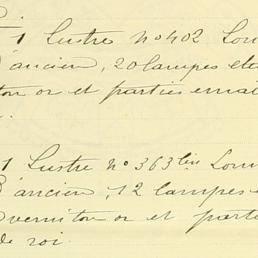 1 Lustre no 402 Lou
d'ancien, 20 lampes ele
ton or et parties email
1 Lustre no 363 bis Lou
d'ancien, 12 lampes
vernis ton or et parti
de roi.